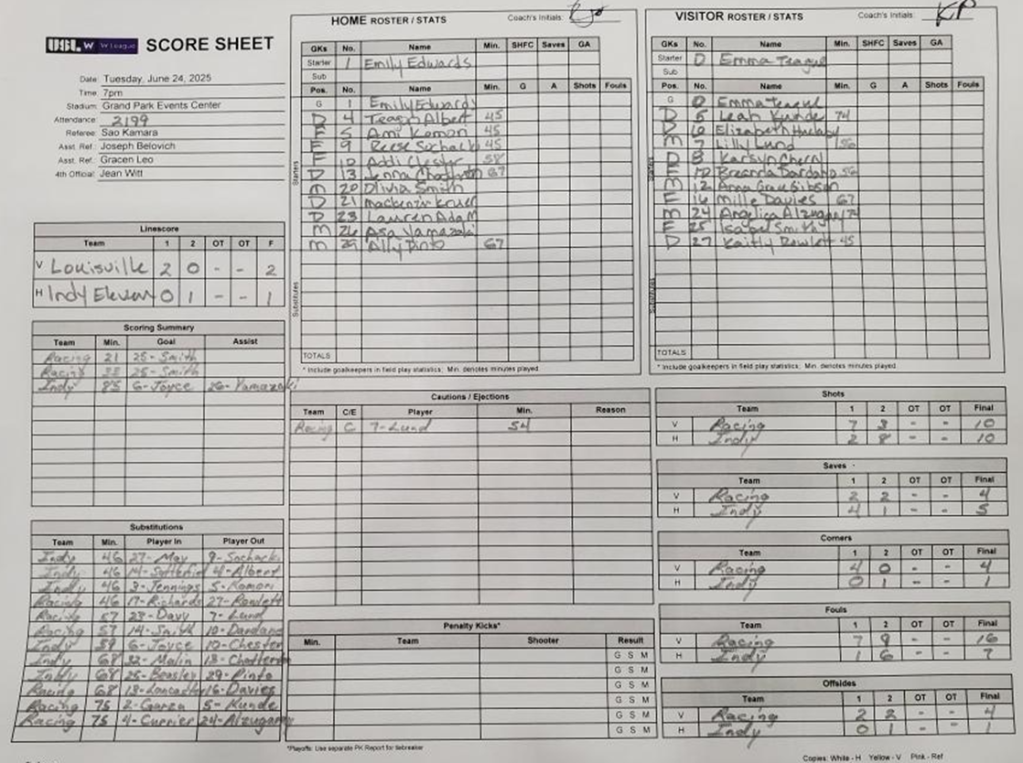 USL W W League SCORE SHEET
Date: Tuesday, June 24, 2025
Time: 7pm
Stadium: Grand Park Events Center
Attendance: 2199
Referee: Sao Kamara
Asst. Ref.: Joseph Belovich
Asst. Ref.: Gracen Leo
4th Official: Jean Witt
Linescore
Team 1 2 OT OT F
V Louisville 2 0 - - 2
H Indy Eleven 0 1 - - 1
Scoring Summary
Team Min. Goal Assist
Racing 21 25-Smith
Racing 25-Smith
Indy 85 6-Joyce 26-Yamazaki
Substitutions
Team Min. Player In Player Out
Indy 46 27-May 9-Sochacki
Indy 46 14- 4-Albert
Indy 46 3-Jennings 5-Komori
Racing 46 17-Richards 27-Rowlett
Racing 57 23-Davy 7-Lund
Racing 57 14-Smith 10-Dardano
Indy 59 6-Joyce 10-Chester
Indy 68 32-Malin 13-
Indy 68 25-Beasley 29-Pinto
Racing 68 13-Lancaster 16-Davies
Racing 75 2-Garza 5-Kunde
Racing 75 4-Currier 24-Alzugaray
HOME ROSTER / STATS Coach's Initials:
GKs No. Name Min. SHFC Saves GA
Starter 1 Emily Edwards
Sub
Pos. No. Name Min. G A Shots Fouls
Starters
G 1 Emily Edwards
D 4 Teagan Albert 45
F 5 Ami 45
F 9 Reese Sochacki 45
F 10 Addi Chester 58
D 13 Jenna 67
M 20 Olivia Smith
D 21 Mackenzie
D 23 Lauren Adam
M 26 Asa Yamazaki
M 29 Ally Pinto 67
Substitutes
TOTALS
* Include goalkeepers in field play statistics; Min. denotes minutes played.
VISITOR ROSTER / STATS Coach's Initials: KP
GKs No. Name Min. SHFC Saves GA
Starter 0 Emma Teague
Sub
Pos. No. Name Min. G A Shots Fouls
Starters
G 0 Emma Teague
D 5 Leah Kunde 74
D Elizabeth
M 7 Lilly Lund 56
D 8 Karsyn Cherry
F 10 Breanna Dardano 56
M 12 Anna Grace Gibson
F 16 Mille Davies 67
M 24 Angelica Alzugaray 74
F 25 Isabel Smith
D 27 Kaitly Rowlett 45
Substitutes
TOTALS
* Include goalkeepers in field play statistics; Min. denotes minutes played.
Cautions / Ejections
Team C/E Player Min. Reason
Racing C 7-Lund 54
Penalty Kicks*
Min. Team Shooter Result
G S M
G S M
G S M
G S M
G S M
G S M
*Playoffs: Use separate PK Report for tiebreaker
Shots
Team 1 2 OT OT Final
V Racing 7 3 - - 10
H Indy 2 8 - - 10
Saves
Team 1 2 OT OT Final
V Racing 2 2 - - 4
H Indy 4 1 - - 5
Corners
Team 1 2 OT OT Final
V Racing 4 0 - - 4
H Indy 0 1 - - 1
Fouls
Team 1 2 OT OT Final
V Racing 7 9 - - 16
H Indy 1 6 - - 7
Offsides
Team 1 2 OT OT Final
V Racing 2 2 - - 4
H Indy 0 1 - - 1
Copies: White - H Yellow - V Pink - Ref